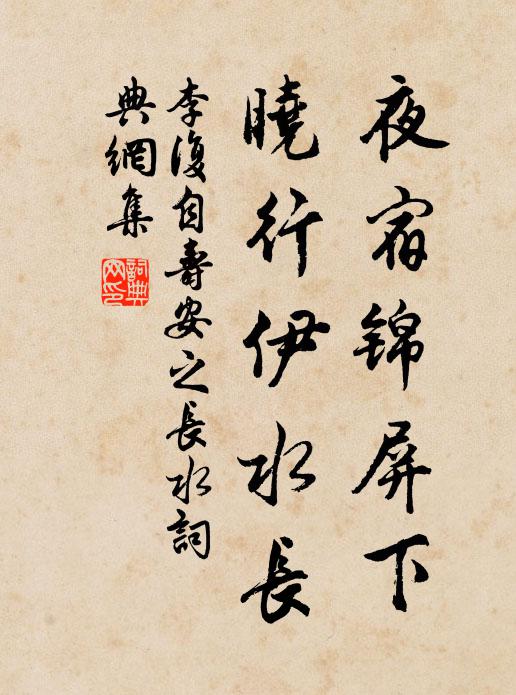 夜宿锦屏下
曉行伊水長
李復自壽安之長水詞
典網集
詞典網印